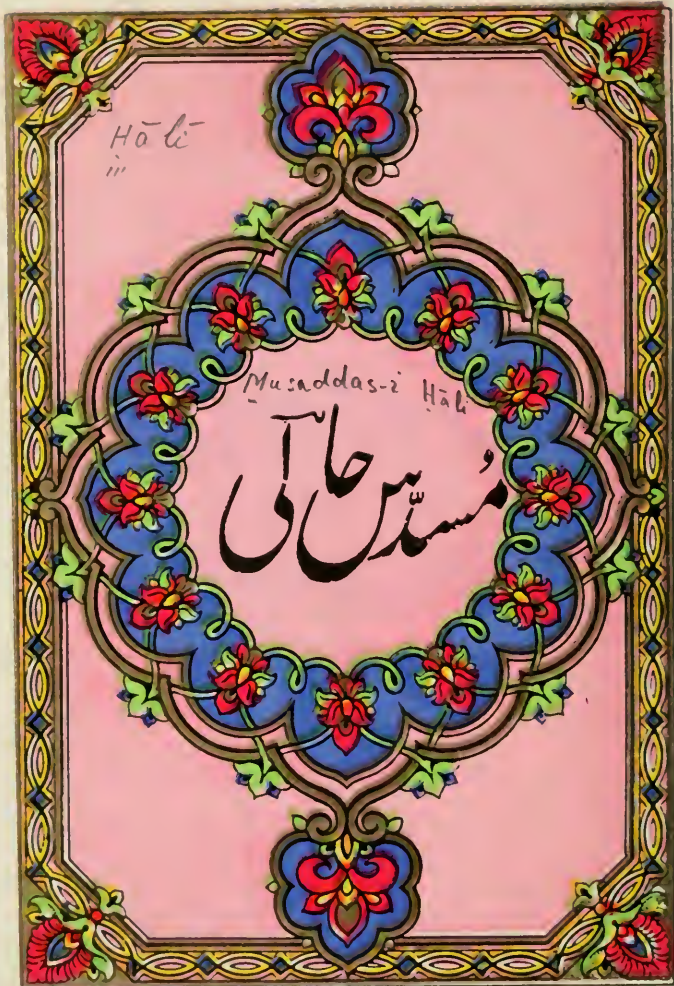 Hālī
iii
Musaddas-i Hāli
مُسدّسِ حالی